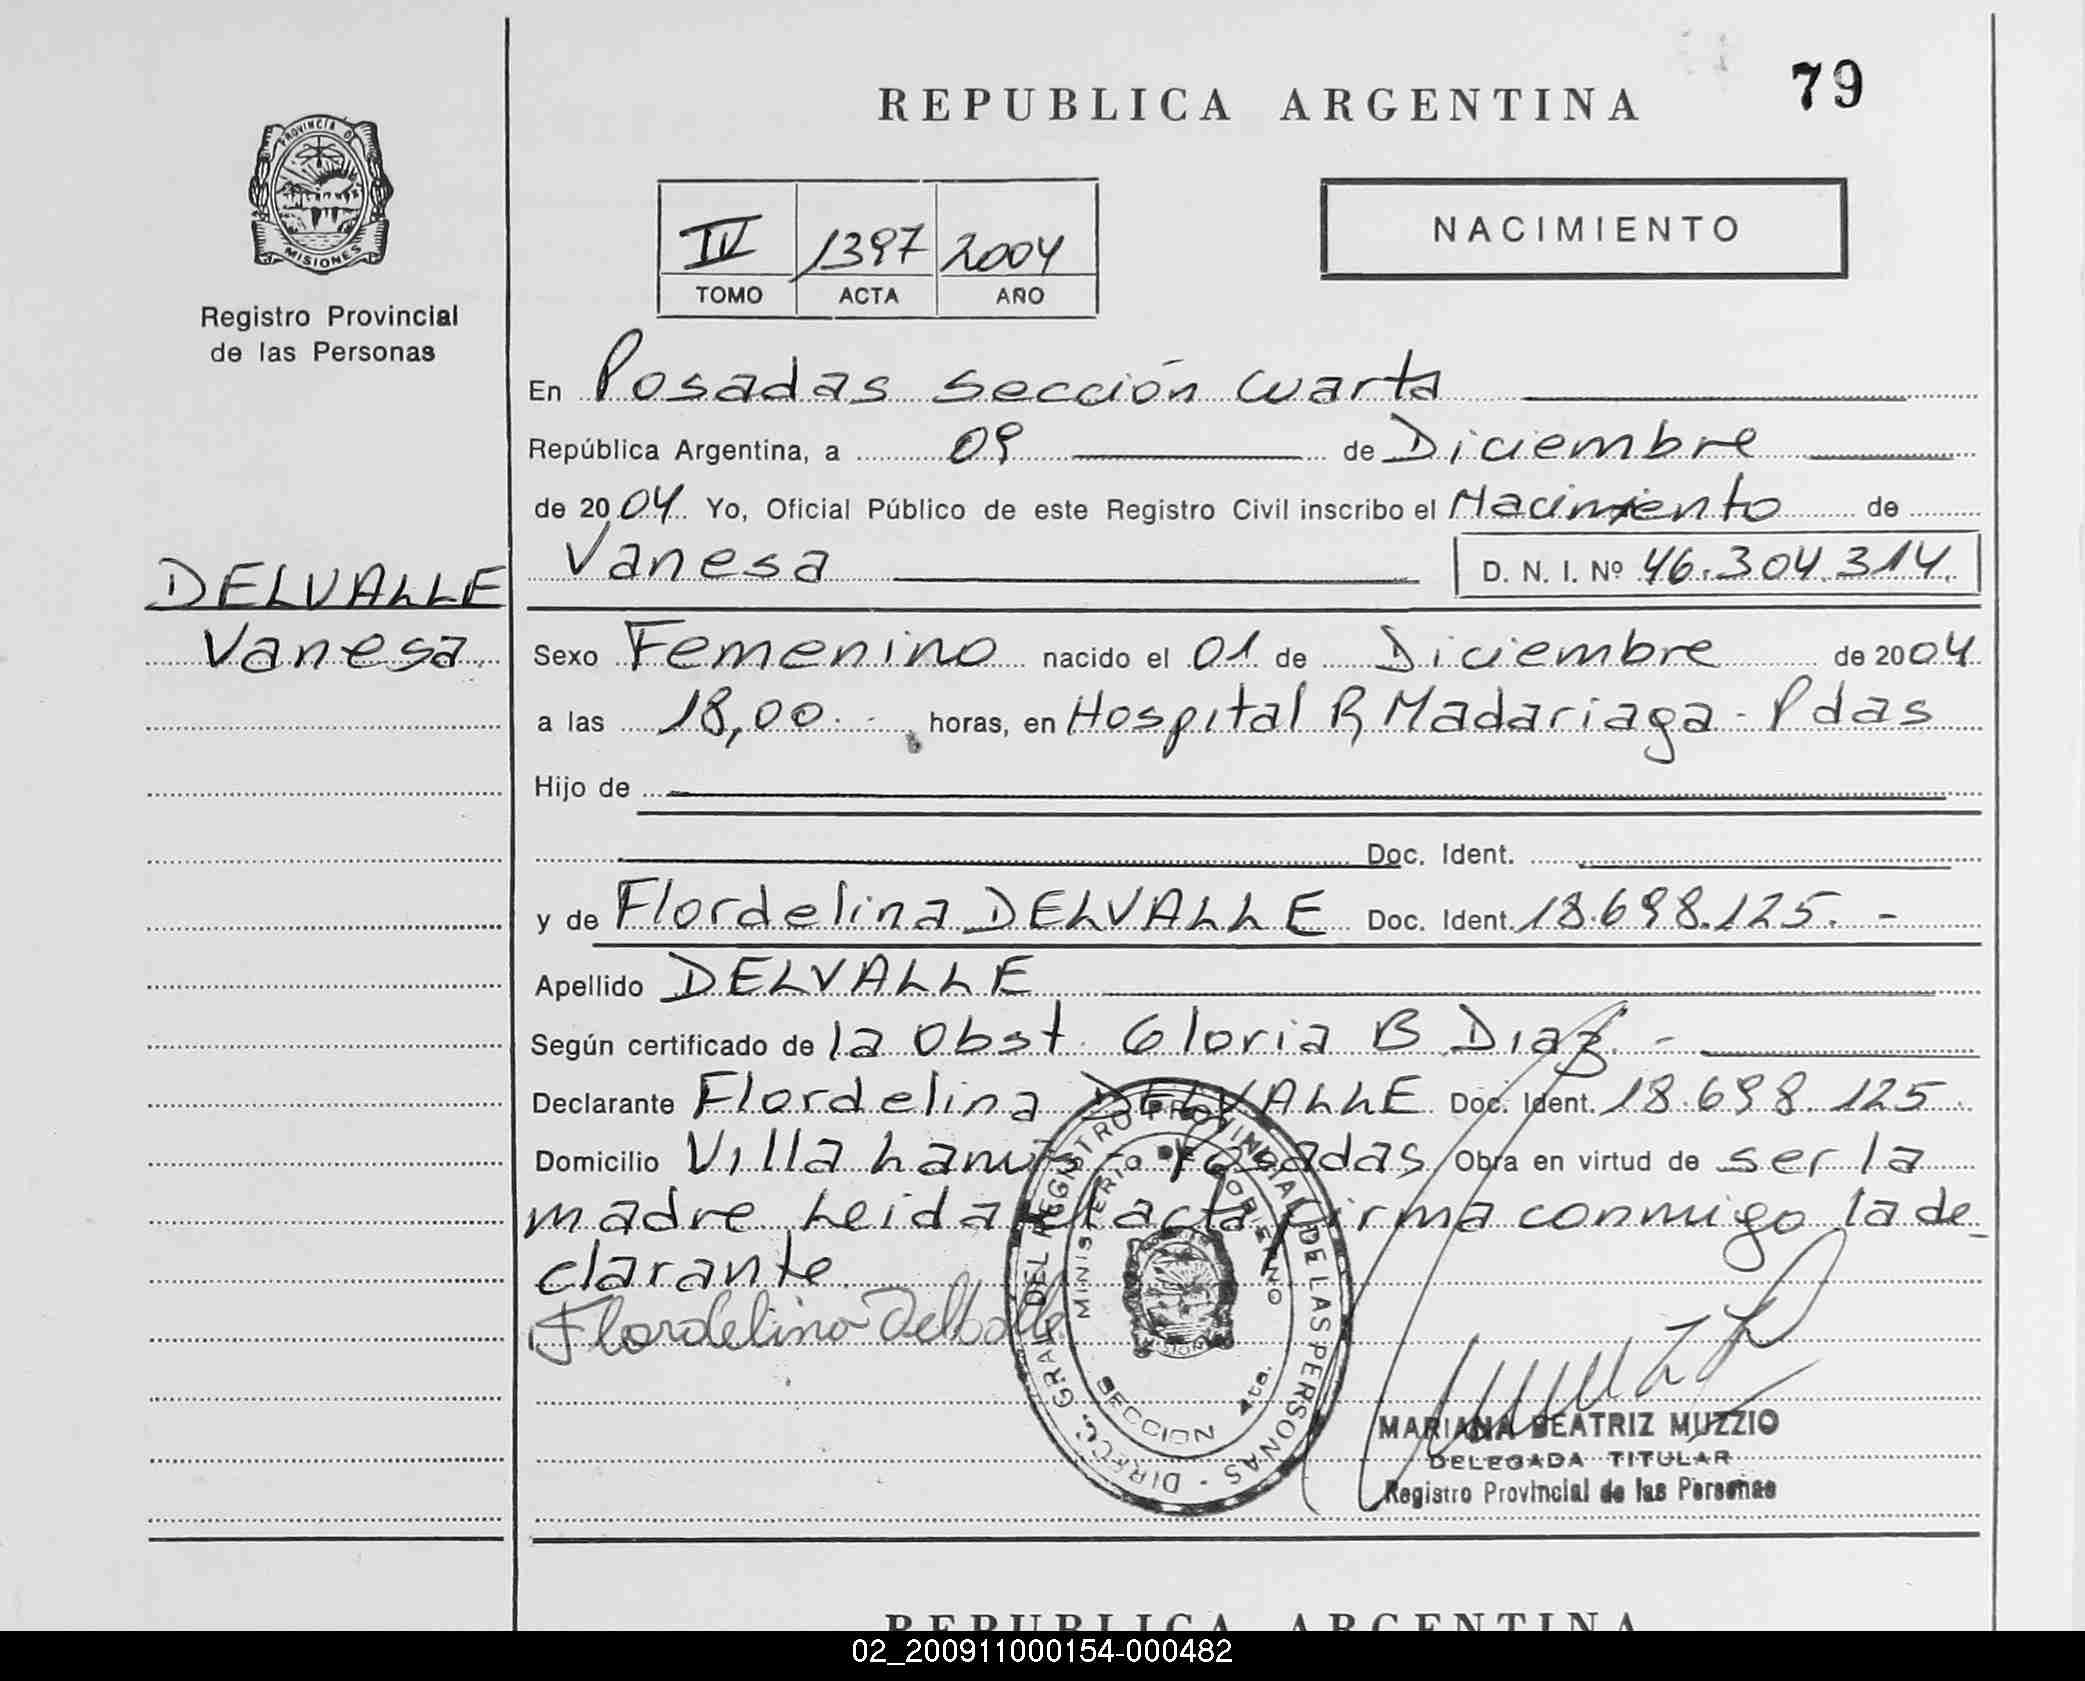 REPUBLICA ARGENTINA
79
PROVINCIA DE
MISIONES
Registro Provincial
de las Personas
IV 1397 2004
TOMO ACTA AÑO
NACIMIENTO
En Posadas sección cuarta
República Argentina, a 09 de Diciembre
de 2004 Yo, Oficial Público de este Registro Civil inscribo el Nacimiento de
Vanesa D. N. I. Nº 46.304.314.
DELVALLE
Vanesa
Sexo Femenino nacido el 01 de Diciembre de 2004
a las 18,00.- horas, en Hospital R Madariaga - Pdas
Hijo de
Doc. Ident.
y de Flordelina DELVALLE Doc. Ident. 18.698.125. -
Apellido DELVALLE
Según certificado de la Obst. Gloria B Diaz. -
Declarante Flordelina DELVALLE Doc. Ident. 18.698.125.
Domicilio Villa Lanús - Posadas Obra en virtud de ser la
madre. Leida el acta firma conmigo la de_
clarante.
Flordelina Delballe
DIRECC. GRAL. DEL REGISTRO PROVINCIAL DE LAS PERSONAS -
MINISTERIO DE GOBIERNO
SECCION 4ta.
MARIANA BEATRIZ MUZZIO
DELEGADA TITULAR
Registro Provincial de las Personas
REPUBLICA ARGENTINA
02_200911000154-000482